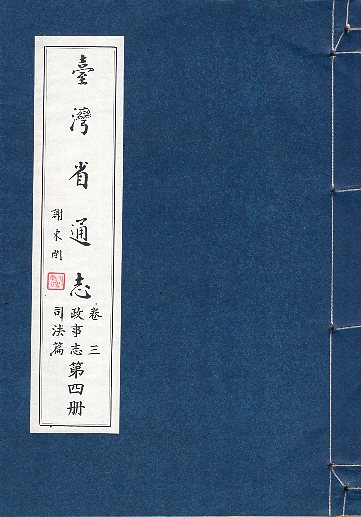 臺灣省通志
謝東閔
卷三
政事志
司法篇
第四册